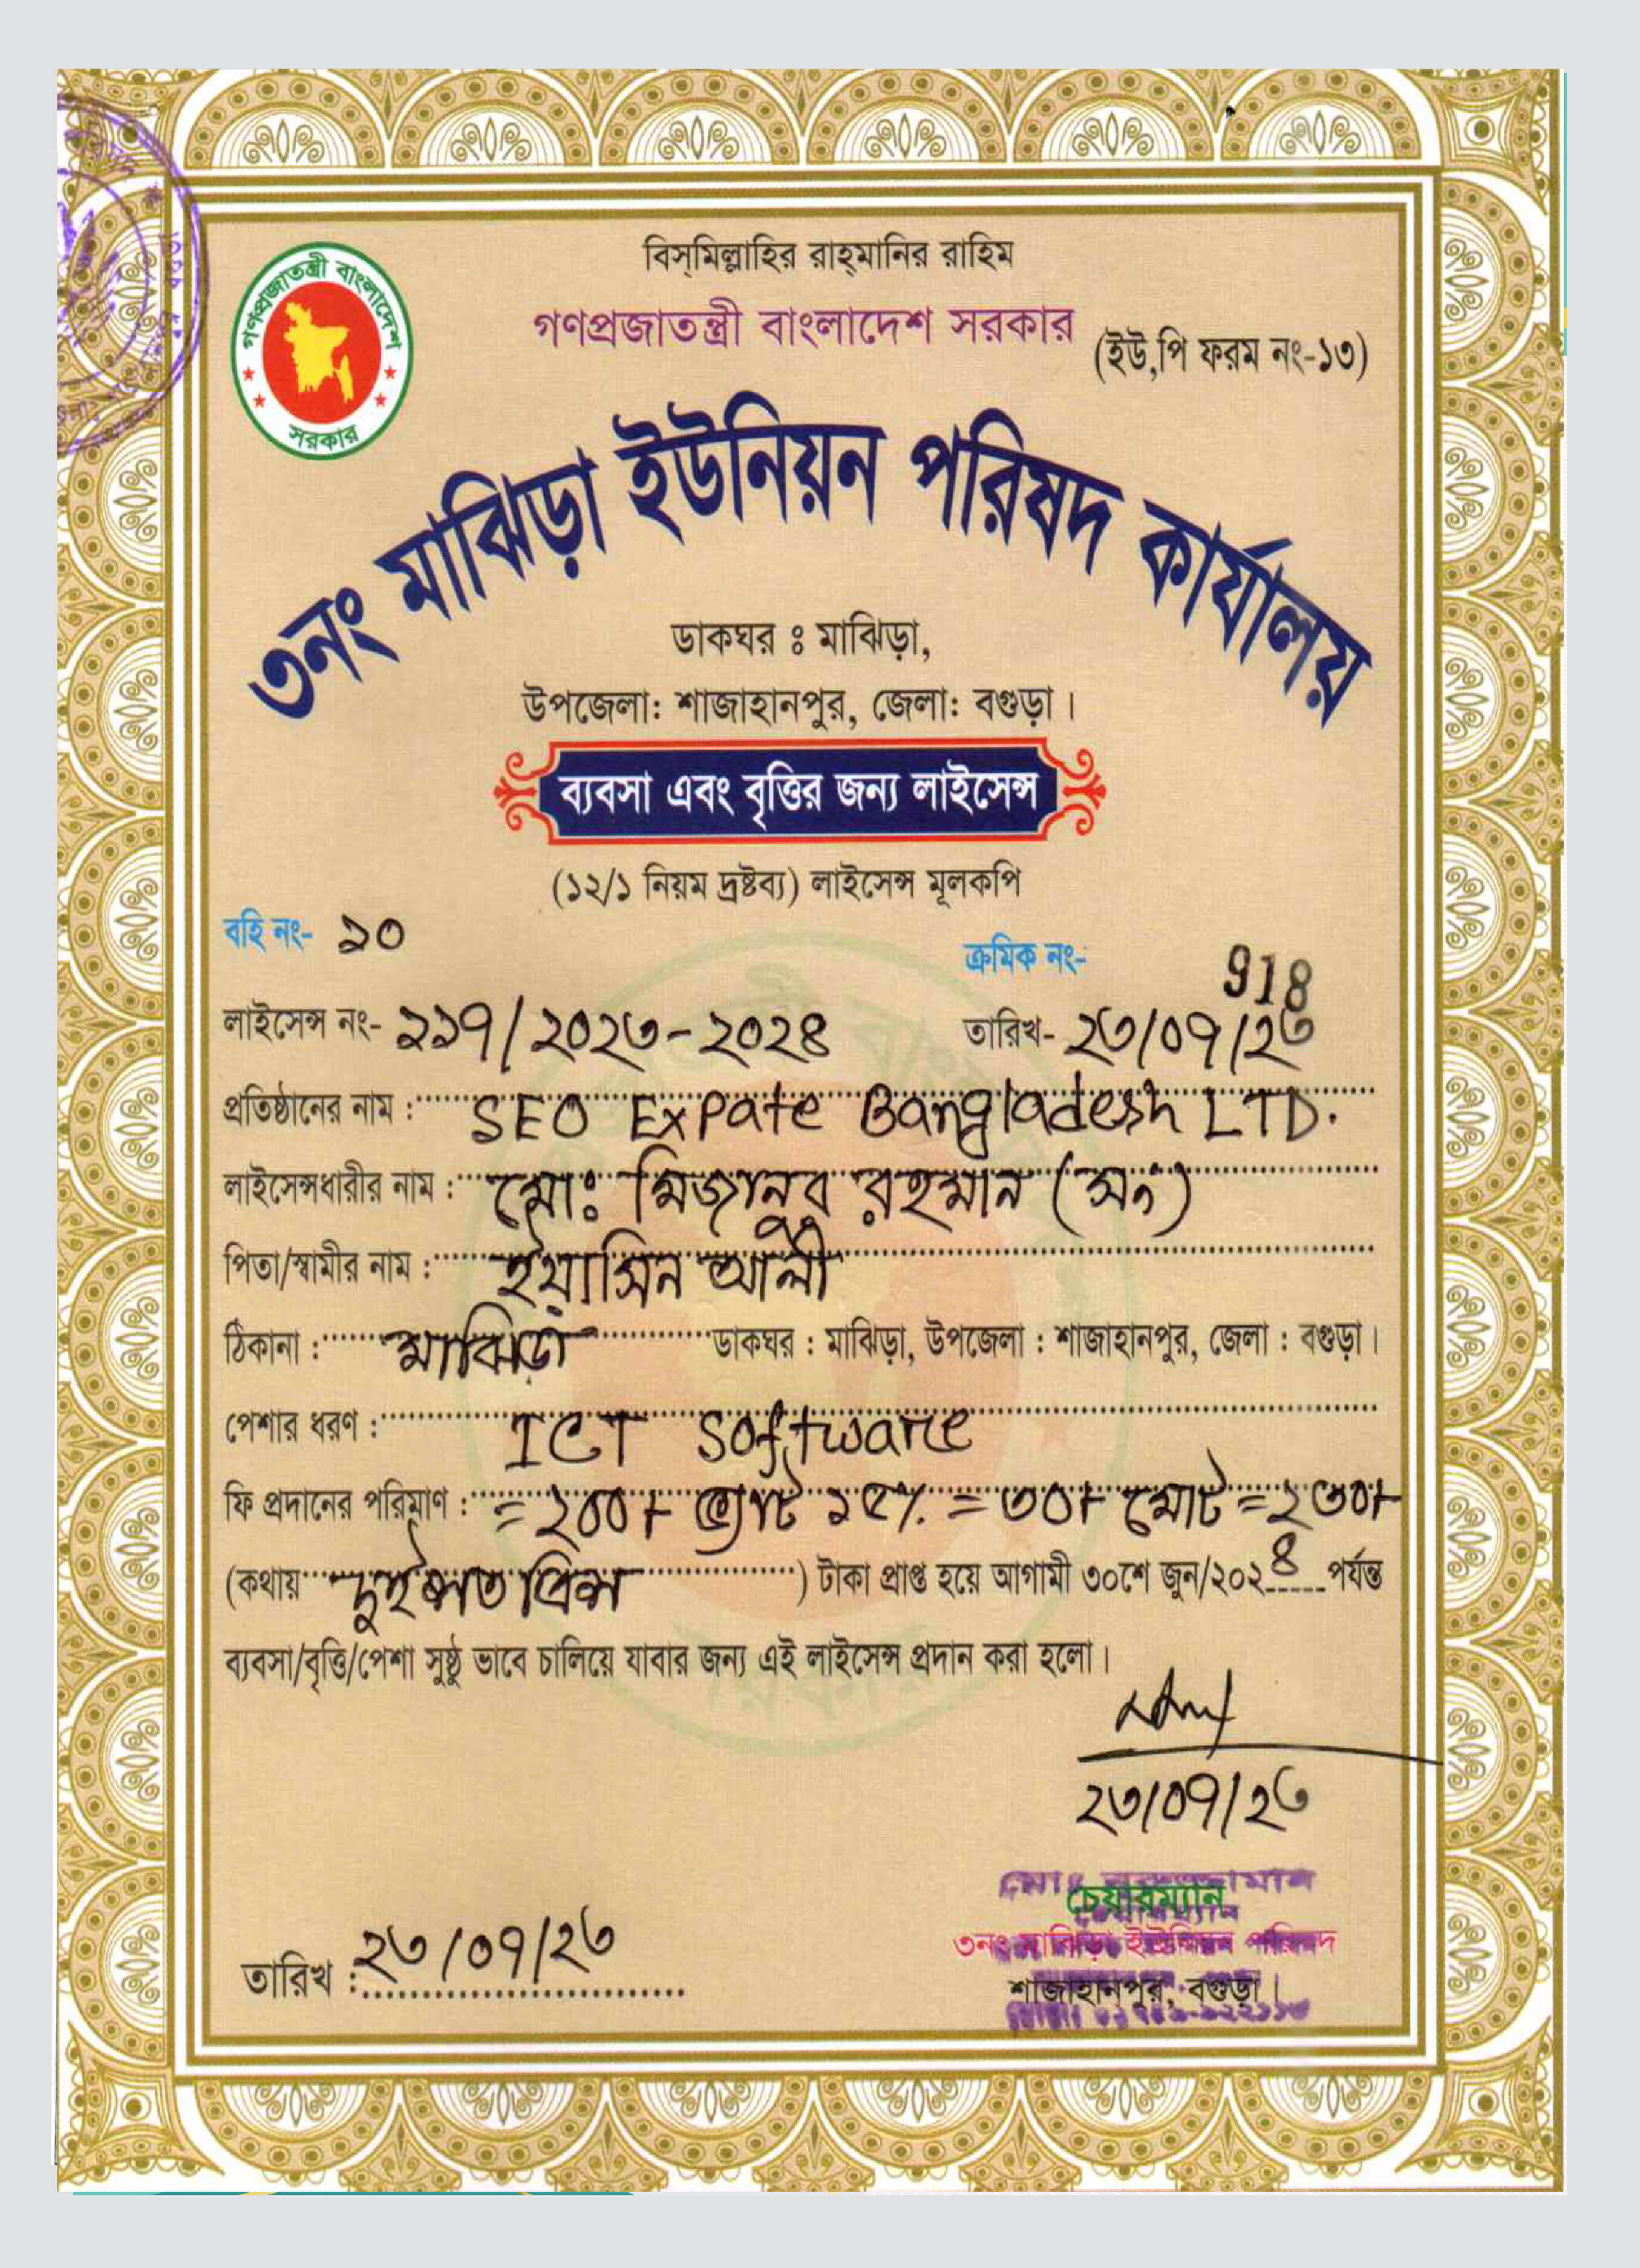 বিস্‌মিল্লাহির রাহ্‌মানির রাহিম
গণপ্রজাতন্ত্রী বাংলাদেশ সরকার
(ইউ,পি ফরম নং-১৩)
গণপ্রজাতন্ত্রী বাংলাদেশ সরকার
৩নং মাঝিড়া ইউনিয়ন পরিষদ কার্যালয়
ডাকঘর ঃ মাঝিড়া,
উপজেলা: শাজাহানপুর, জেলা: বগুড়া।
ব্যবসা এবং বৃত্তির জন্য লাইসেন্স
(১২/১ নিয়ম দ্রষ্টব্য) লাইসেন্স মূলকপি
বহি নং- ১০
ক্রমিক নং- 918
লাইসেন্স নং- ১১৭/২০২৩-২০২৪ তারিখ- ২৩/০৭/২৩
প্রতিষ্ঠানের নাম : SEO Expate Bangladesh LTD.
লাইসেন্সধারীর নাম : মোঃ মিজানুর রহমান
পিতা/স্বামীর নাম : ইয়াসিন আলী
ঠিকানা : মাঝিড়া ডাকঘর : মাঝিড়া, উপজেলা : শাজাহানপুর, জেলা : বগুড়া।
পেশার ধরণ : ICT Software
ফি প্রদানের পরিমাণ : =২০০৲ ভ্যাট ১৫% = ৩০৲ মোট = ২৩০৲
(কথায় দুইশত ত্রিশ ) টাকা প্রাপ্ত হয়ে আগামী ৩০শে জুন/২০২৪ পর্যন্ত
ব্যবসা/বৃত্তি/পেশা সুষ্ঠু ভাবে চালিয়ে যাবার জন্য এই লাইসেন্স প্রদান করা হলো।
২৩/০৭/২৩
চেয়ারম্যান
৩নং মাঝিড়া ইউনিয়ন পরিষদ
শাজাহানপুর, বগুড়া।
তারিখ : ২৩/০৭/২৩